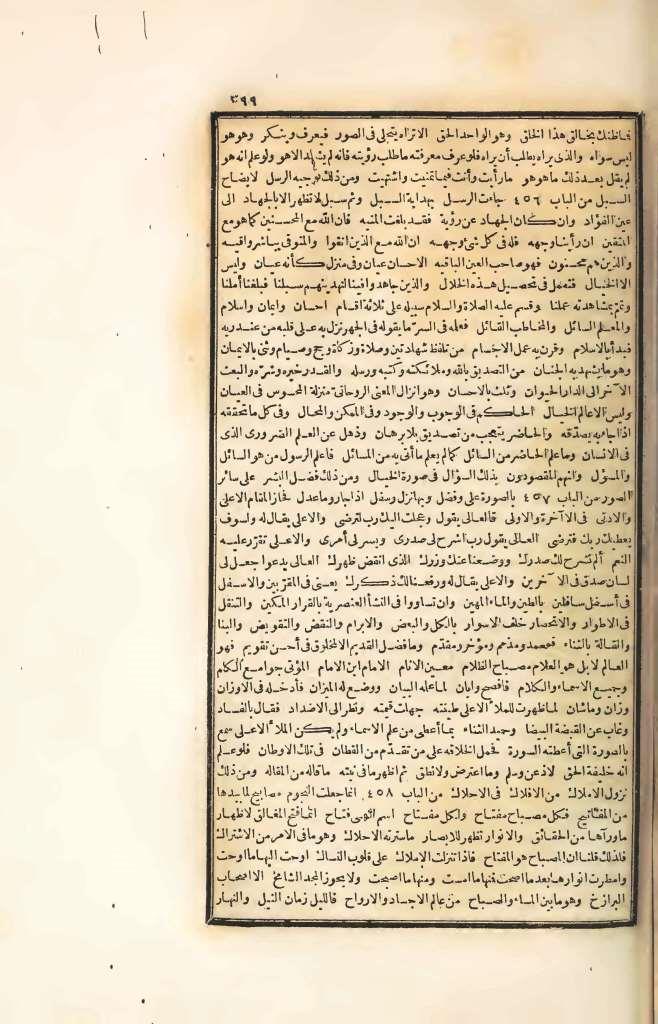 ٣٩٩
فما ظنك بخالق هذا الخلق وهو الواحد الحق الا تراه يتجلى فى الصور فيعرف وينكر وهو هو
ليس سواه والذى يراه يطالب أن يراه فلو عرف معرفته ما طلب رؤيته فانه لم يشهد الا هو ولو علم انه هو
لم يقل بعد ذلك ما هو هو ما رأيت وأنت فيما تمنيت واشتهيت ومن ذلك توجيه الرسل لايضاح
السبل من الباب ٤٥٦ جاءت الرسل بهداية السبل وثم سبل لا تظهر الا بالجهاد الى
عين الفؤاد وان كان الجهاد عن رؤية فقد بلغت المنيه فان الله مع المحسنين كما هو مع
المتقين ان رأيتا وجهه فله فى كل شئ وجهه ان الله مع الذين اتقوا والمتوقى يباشر واقيه
والذين هم محسنون فهو صاحب العين الباقيه الاحسان عيان وفى منزل كأنه عيان وليس
الا الخيال فتعمل فى تحصيل هذه الخلال والذين جاهدوا فينا لنهدينهم سبلنا فبلغنا أملنا
وتميز بمشاهدته عملنا وقسم عليه الصلاة والسلام سبيله على ثلاثة اقسام احسان وايمان واسلام
والمعلم السائل والمخاطب القائل فعله فى السر ما يقوله فى الجهر نزل به على قلبه من عند ربه
فبدأ بالاسلام وقرن به عمل الاجسام من تلفظ شهادتين وصلاة وزكاة وحج وصيام وثنى بالايمان
وهو ما يشهد به الجنان من التصديق بالله وملائكته وكتبه ورسله والقدر خيره وشره والبعث
الآخر الى الدار الحيوان وثلث بالاحسان وهو انزال المعنى الروحانى منزلة المحسوس فى العيان
وليس الا عالم الخيال الحاكم فى الوجوب والوجود وفى الممكن والمحال وفى كل ما تحققته
اذا جاءه به يصدقه والحاضر يتعجب من تصديق بلا برهان وذهل عن العلم الضرورى الذى
فى الانسان وما علم الحاضر من السائل كما لم يعلم ما أتى به من المسائل فاعلم الرسول من هو السائل
والمسؤل وانهم المقصودون بذلك السؤال فى صورة الخيال ومن ذلك فضل البشر على سائر
الصور من الباب ٤٥٧ بالصورة على وفضل وبها نزل وسفل اذا جار وما عدل فحاز المقام الاعلى
والادنى فى الآخرة والاولى فالعالى يقول وعجلت اليك رب لترضى والاعلى يقال له ولسوف
يعطيك ربك فترضى العالى يقول رب اشرح لى صدرى ويسر لى أمرى والاعلى تقرر عليه
النعم ألم نشرح لك صدرك ووضعنا عنك وزرك الذى انقض ظهرك العالى يدعو اجعل لى
لسان صدق فى الآخرين والاعلى يقال له ورفعنا لك ذكرك يعنى فى المقربين والاسفل
فى أسفل سافلين بالطين والماء المهين وان تساووا فى النشأ العنصرية بالقرار المكين والتنقل
فى الاطوار والانحصار خلف الاسوار بالكل والبعض والابرام والنقض والتقويض والبنا
والقالة بالثناء فحمد ومذمم ومؤخر ومقدم وما فضل القديم الا المخلوق فى أحسن تقويم فهو
العالم لا بل هو العلام مصباح الظلام معين الانام الامام ابن الامام المؤتى جوامع الكلم
وجميع الاسماء والكلام فافصح وابان لما علمه البيان ووضع له الميزان فأدخله فى الاوزان
وزان وما شان لما ظهرت للملأ الاعلى طينته جهلت قيمته ونظر الى الاضداد فقال بالفساد
وغاب عن القبضة البيضا وحميد الثناء بما أعطى من علم الاسماء ولم يكن الملأ الاعلى سمع
بالصورة التى أعطته السورة فحمل الخلافه على من تقدم من القطان فى تلك الاوطان فلو علم
انه خليفة الحق لاذعن وسلم وما اعترض ولا نطق ثم اظهر ما فى نيته ما قاله من المقاله ومن ذلك
نزول الاملاك من الافلاك فى الاحلاك من الباب ٤٥٨ انما جعلت النجوم مصابيح لما بيدها
من المفاتيح فكل مصباح مفتاح ولكل مفتاح اسم الهى فتاح انما فتح المغالق لاظهار
ما وراها من الحقائق والانوار تظهر للابصار ما سترته الاحلاك وهو ما فى الامر من الاشتراك
فلذلك قلنا ان المصباح هو المفتاح فاذا تنزلت الاملاك على قلوب النساك اوحت اليها ما اوحت
وامطرت انوارها بعد ما اصحت فمنها ما امست ومنها ما اصبحت ولا يحوز المجد الشامخ الا اصحاب
البرازخ وهو ما بين المساء والصباح من عالم الاجساد والارواح فالليل زمان النيل والنهار